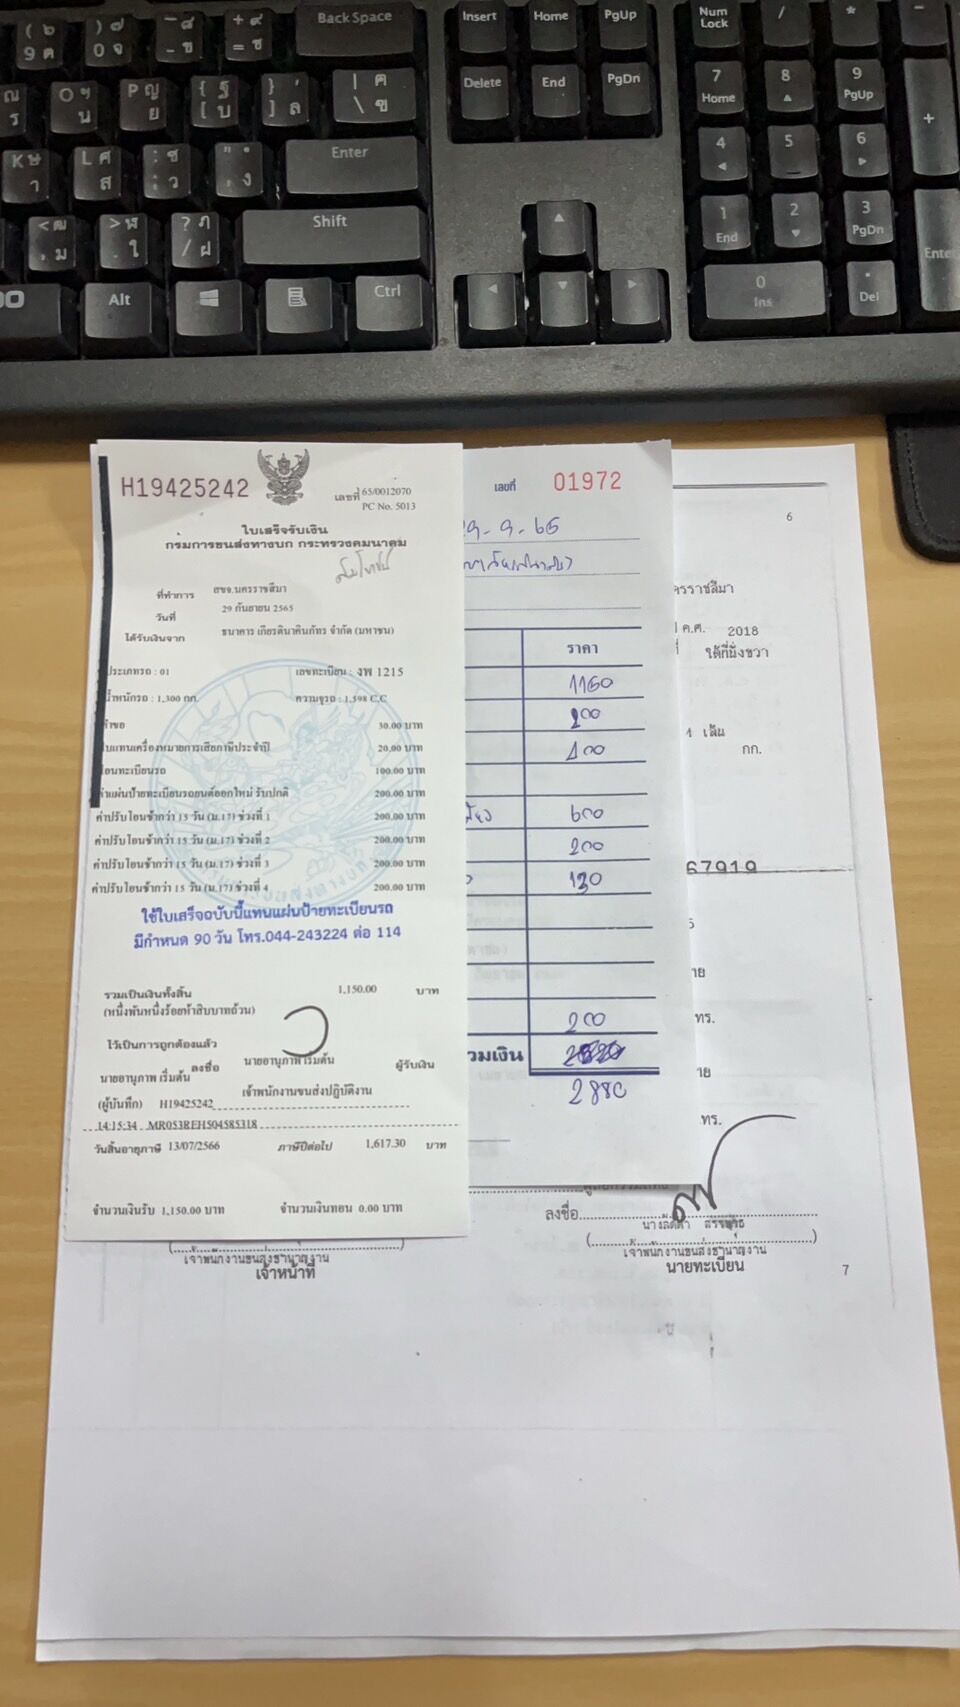 ( ๖
9 ค
) ๗
0 จ
_ ๘
- ข
+ ๙
= ช
Back Space
Insert
Home
PgUp
Num Lock
/
*
-
ฌ
ร
O ฯ
น
P ญ
ย
{ ฐ
[ บ
} ,
] ล
| ฅ
\ ฃ
Delete
End
PgDn
7
Home
8
9
PgUp
+
K ษ
า
L ศ
ส
: ซ
; ว
" .
' ง
Enter
4
5
6
< ฒ
, ม
> ฬ
. ใ
? ฦ
/ ฝ
Shift
1
End
2
3
PgDn
Enter
Alt
Ctrl
0
Ins
.
Del
H19425242
เลขที่ 65/0012070
PC No. 5013
ใบเสร็จรับเงิน
กรมการขนส่งทางบก กระทรวงคมนาคม
ที่ทำการ สขจ.นครราชสีมา
วันที่ 29 กันยายน 2565
ได้รับเงินจาก ธนาคาร เกียรตินาคินภัทร จำกัด (มหาชน)
ประเภทรถ : 01 เลขทะเบียน : งพ 1215
น้ำหนักรถ : 1,300 กก. ความจุรถ : 1,598 C.C
คำขอ 30.00 บาท
ใบแทนเครื่องหมายการเสียภาษีประจำปี 20.00 บาท
โอนทะเบียนรถ 100.00 บาท
ค่าแผ่นป้ายทะเบียนรถยนต์ออกใหม่ รับปกติ 200.00 บาท
ค่าปรับโอนช้ากว่า 15 วัน (ม.17) ช่วงที่ 1 200.00 บาท
ค่าปรับโอนช้ากว่า 15 วัน (ม.17) ช่วงที่ 2 200.00 บาท
ค่าปรับโอนช้ากว่า 15 วัน (ม.17) ช่วงที่ 3 200.00 บาท
ค่าปรับโอนช้ากว่า 15 วัน (ม.17) ช่วงที่ 4 200.00 บาท
ใช้ใบเสร็จฉบับนี้แทนแผ่นป้ายทะเบียนรถ
มีกำหนด 90 วัน โทร.044-243224 ต่อ 114
รวมเป็นเงินทั้งสิ้น 1,150.00 บาท
(หนึ่งพันหนึ่งร้อยห้าสิบบาทถ้วน)
ไว้เป็นการถูกต้องแล้ว
ลงชื่อ นายอานุภาพ เริ่มต้น ผู้รับเงิน
นายอานุภาพ เริ่มต้น
เจ้าพนักงานขนส่งปฏิบัติงาน
(ผู้บันทึก) H19425242
14:15:34 MR053REH504585318
วันสิ้นอายุภาษี 13/07/2566 ภาษีปีต่อไป 1,617.30 บาท
จำนวนเงินรับ 1,150.00 บาท จำนวนเงินทอน 0.00 บาท
เลขที่ 01972
29-9-65
ราคา
1150
200
400
600
200
130
200
วมเงิน
2880
6
ครราชสีมา
ค.ศ. 2018
ที่ ใต้ที่นั่งขวา
เส้น
กก.
67919
าย
ทร.
าย
ทร.
ลงชื่อ
เจ้าพนักงานขนส่งชำนาญงาน
นายทะเบียน
เจ้าพนักงานขนส่งชำนาญงาน
เจ้าหน้าที่
7